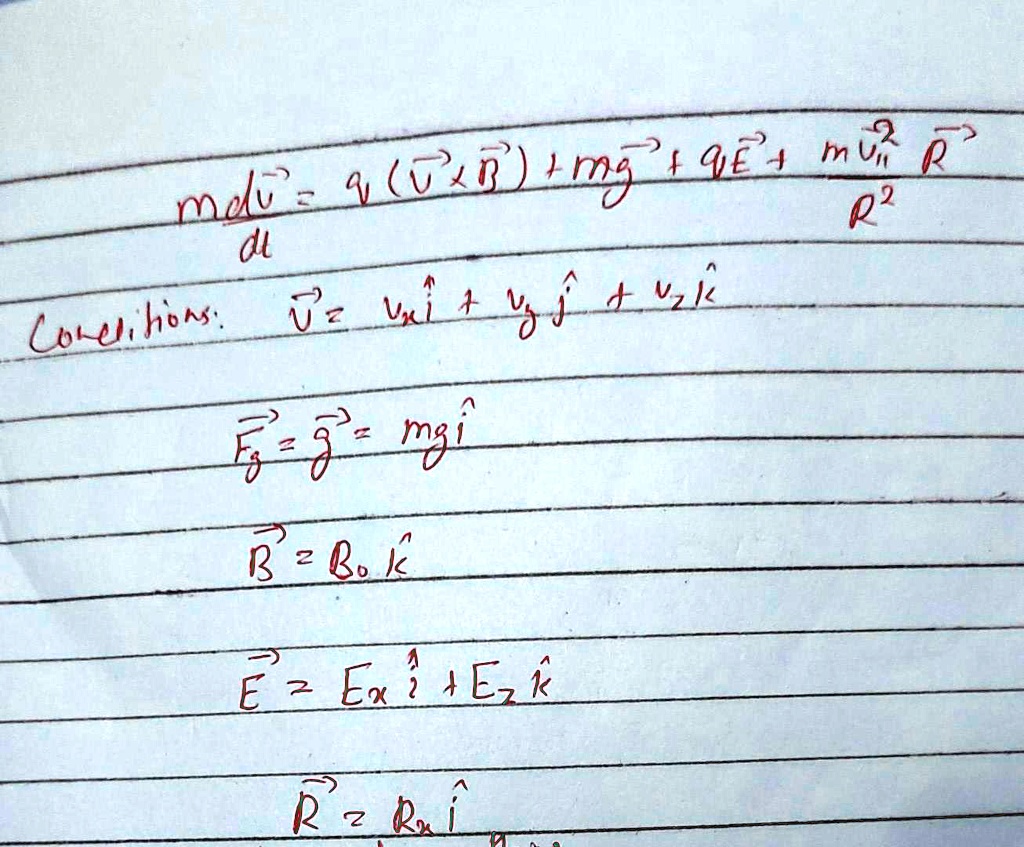 m dv⃗/dt = q (v⃗ × B⃗) + mg⃗ + qE⃗ + m v⃗∥² / R² R⃗
Conditions: v⃗ = vₓ î + v_y ĵ + v_z k̂
F⃗g = g⃗ = mg î
B⃗ = B₀ k̂
E⃗ = Eₓ î + E_z k̂
R⃗ = Rₓ î